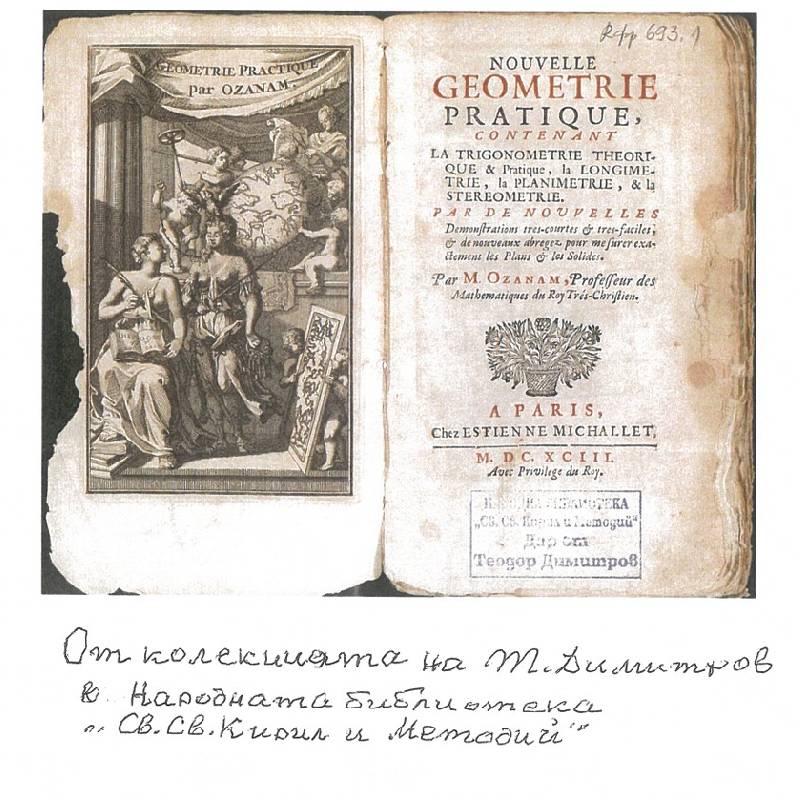 GEOMETRIE PRACTIQUE
par OZANAM.
Rpp 693.1
NOUVELLE
GEOMETRIE
PRATIQUE,
CONTENANT
LA TRIGONOMETRIE THEORI-
QUE & Pratique, la LONGIME-
TRIE, la PLANIMETRIE, & la
STEREOMETRIE.
PAR DE NOUVELLES
Demonstrations tres-courtes & tres-faciles,
& de nouveaux abregez pour mesurer exa-
ctement les Plans & les Solides.
Par M. OZANAM, Professeur des
Mathematiques du Roy Trés-Chrêtien.
A PARIS,
Chez ESTIENNE MICHALLET,
M. DC. XCIII.
Avec Privilege du Roy.
НАРОДНА БИБЛИОТЕКА
„Св. Св. Кирил и Методий“
Дар от
Теодор Димитров
От колекцията на Т. Димитров
в Народната библиотека
„Св. Св. Кирил и Методий“